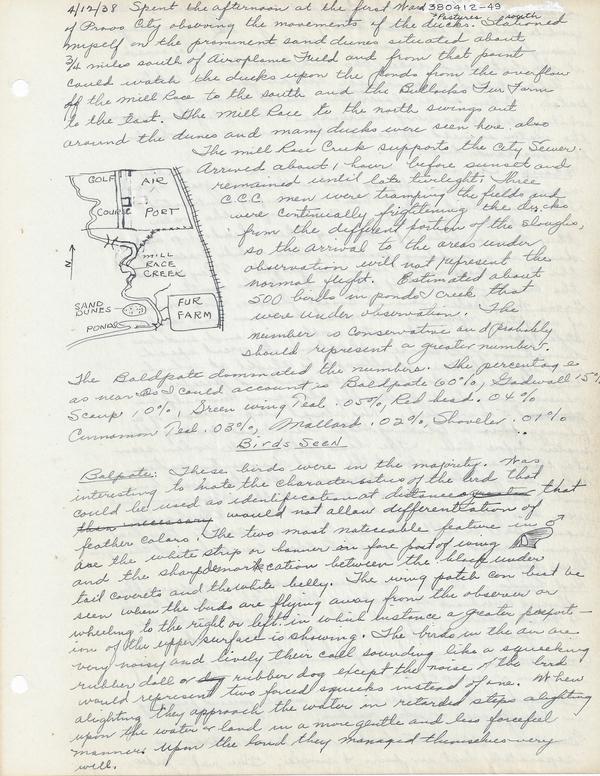 4/12/38 Spent the afternoon at the first Ward 380412-49
Pastures south
of Provo City observing the movements of the ducks. Stationed
myself on the prominent sand dunes situated about
3/4 miles south of Airoplane Field and from that point
could watch the ducks upon the ponds from the overflow
of the Mill Race to the south and the Bullocks Fur Farm
to the East. The Mill Race to the north swings out
around the dunes and many ducks were seen here also
The Mill Race Creek supports the City Sewer.
Arrived about 1 hour before sunset and
remained until late twilight. Three
C.C.C. men were tramping the fields and
were continually frightening the ducks
from the different portion of the Sloughs,
so the arrival to the areas under
observation will not represent the
normal flight. Estimated about
500 birds in ponds & creek that
were under observation. The
number is conservative and probably
should represent a greater number.
GOLF
COURSE
AIR
PORT
N
MILL
RACE
CREEK
SAND
DUNES
PONDS
FUR
FARM
The Baldpate dominated the numbers. The percentage
as near as I could account is Baldpate 60%, Gadwall 15%
Scaup 10%, Green wing Teal .05%, Red head .04%
Cinnamon Teal .03%, Mallard .02%, Shoveler .01%
Birds Seen
Balpate: These birds were in the majority. Was
interesting to note the characteristics of the bird that
could be used as identification at distance that
then necessary would not allow differentation of
feather colors. The two most noticeable feature in ♂
are the white strip or banner on fore part of wing
and the sharp demarkcation between the black under
tail coverts and the white belly. The wing patch can best be
seen when the birds are flying away from the observer or
wheeling to the right or left: in which instance a greater proport-
ion of the upper surface is showing. The birds in the air are
very noisy and lively their call sounding like a squeeking
rubber doll or dog rubber dog except the noise of the bird
would represent two forced squeeks instead of one. When
alighting they approach the water in retarded steps alighting
upon the water or land in a more gentle and less forcefeel
manner. Upon the land they managed themselves very
well.